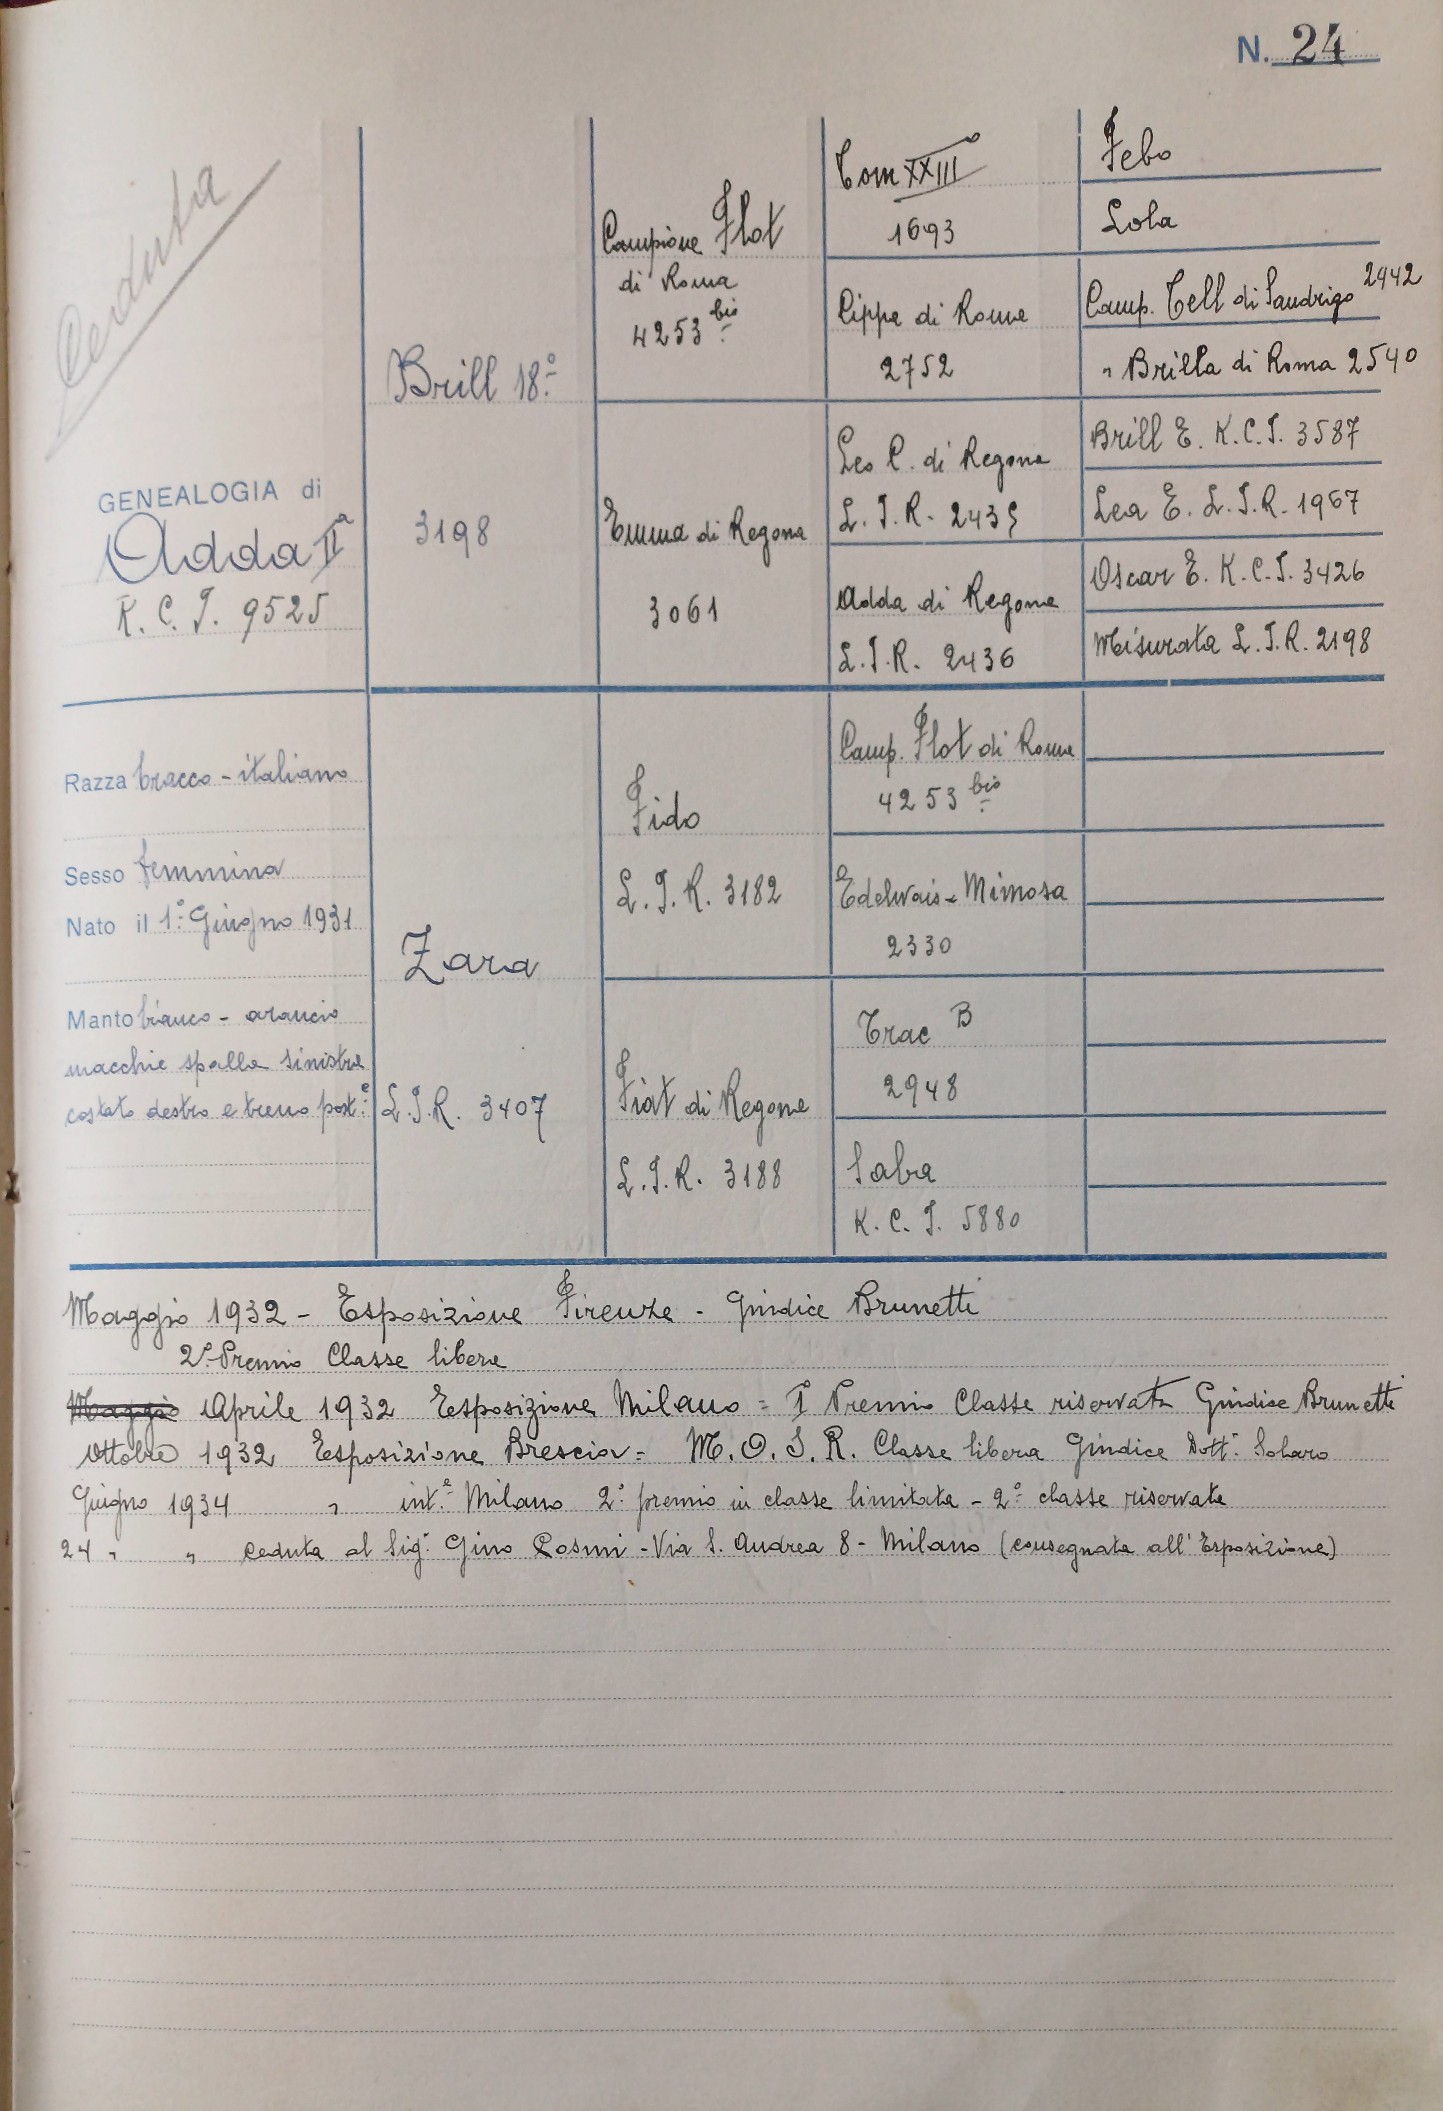 N. 24
Ceduta
GENEALOGIA di
Adda IIª
K. C. I. 9525
Razza bracco - italiano
Sesso femmina
Nato il 1º Giugno 1931
Manto bianco - arancio
macchie spalla sinistra
costato destro e treno post.e
Brill 18º
3198
Zara
L.I.R. 3407
Campione Flot
di Roma
4253 bis
Emma di Regona
3061
Fido
L.I.R. 3182
Fiat di Regona
L.I.R. 3188
Tom XXIIIº
1693
Pippa di Roma
2752
Leo P. di Regona
L.I.R. 2435
Adda di Regona
L.I.R. 2436
Camp. Flot di Roma
4253 bis
Edelvais - Mimosa
2330
Trac B
2948
Saba
K. C. I. 5880
Febo
Lola
Camp. Tell di Sandrigo 2442
" Brilla di Roma 2540
Brill E. K.C.I. 3587
Lea E. L.I.R. 1967
Oscar E. K.C.I. 3426
Misurata L.I.R. 2198
Maggio 1932 - Esposizione Firenze - Giudice Brunetti
2º Premio Classe libera
Maggio Aprile 1932 Esposizione Milano = I Premio Classe riservata Giudice Brunetti
Ottobre 1932 Esposizione Brescia = M. O. I. R. Classe libera Giudice Dott. Solaro
Giugno 1934 " int.e Milano 2º premio in classe limitata - 2º classe riservata
24 " " ceduta al Sig. Gino Cosmi - Via S. Andrea 8 - Milano (consegnata all'Esposizione)